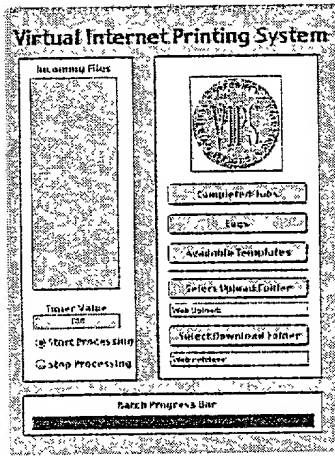 Virtual Internet Printing System
Incoming Files
Timer Value
Start Processing
Stop Processing
VIPS
Completed Jobs
Logs
Available Templates
Select Upload Folder
Web Uploads
Select Download Folder
Batch Progress Bar